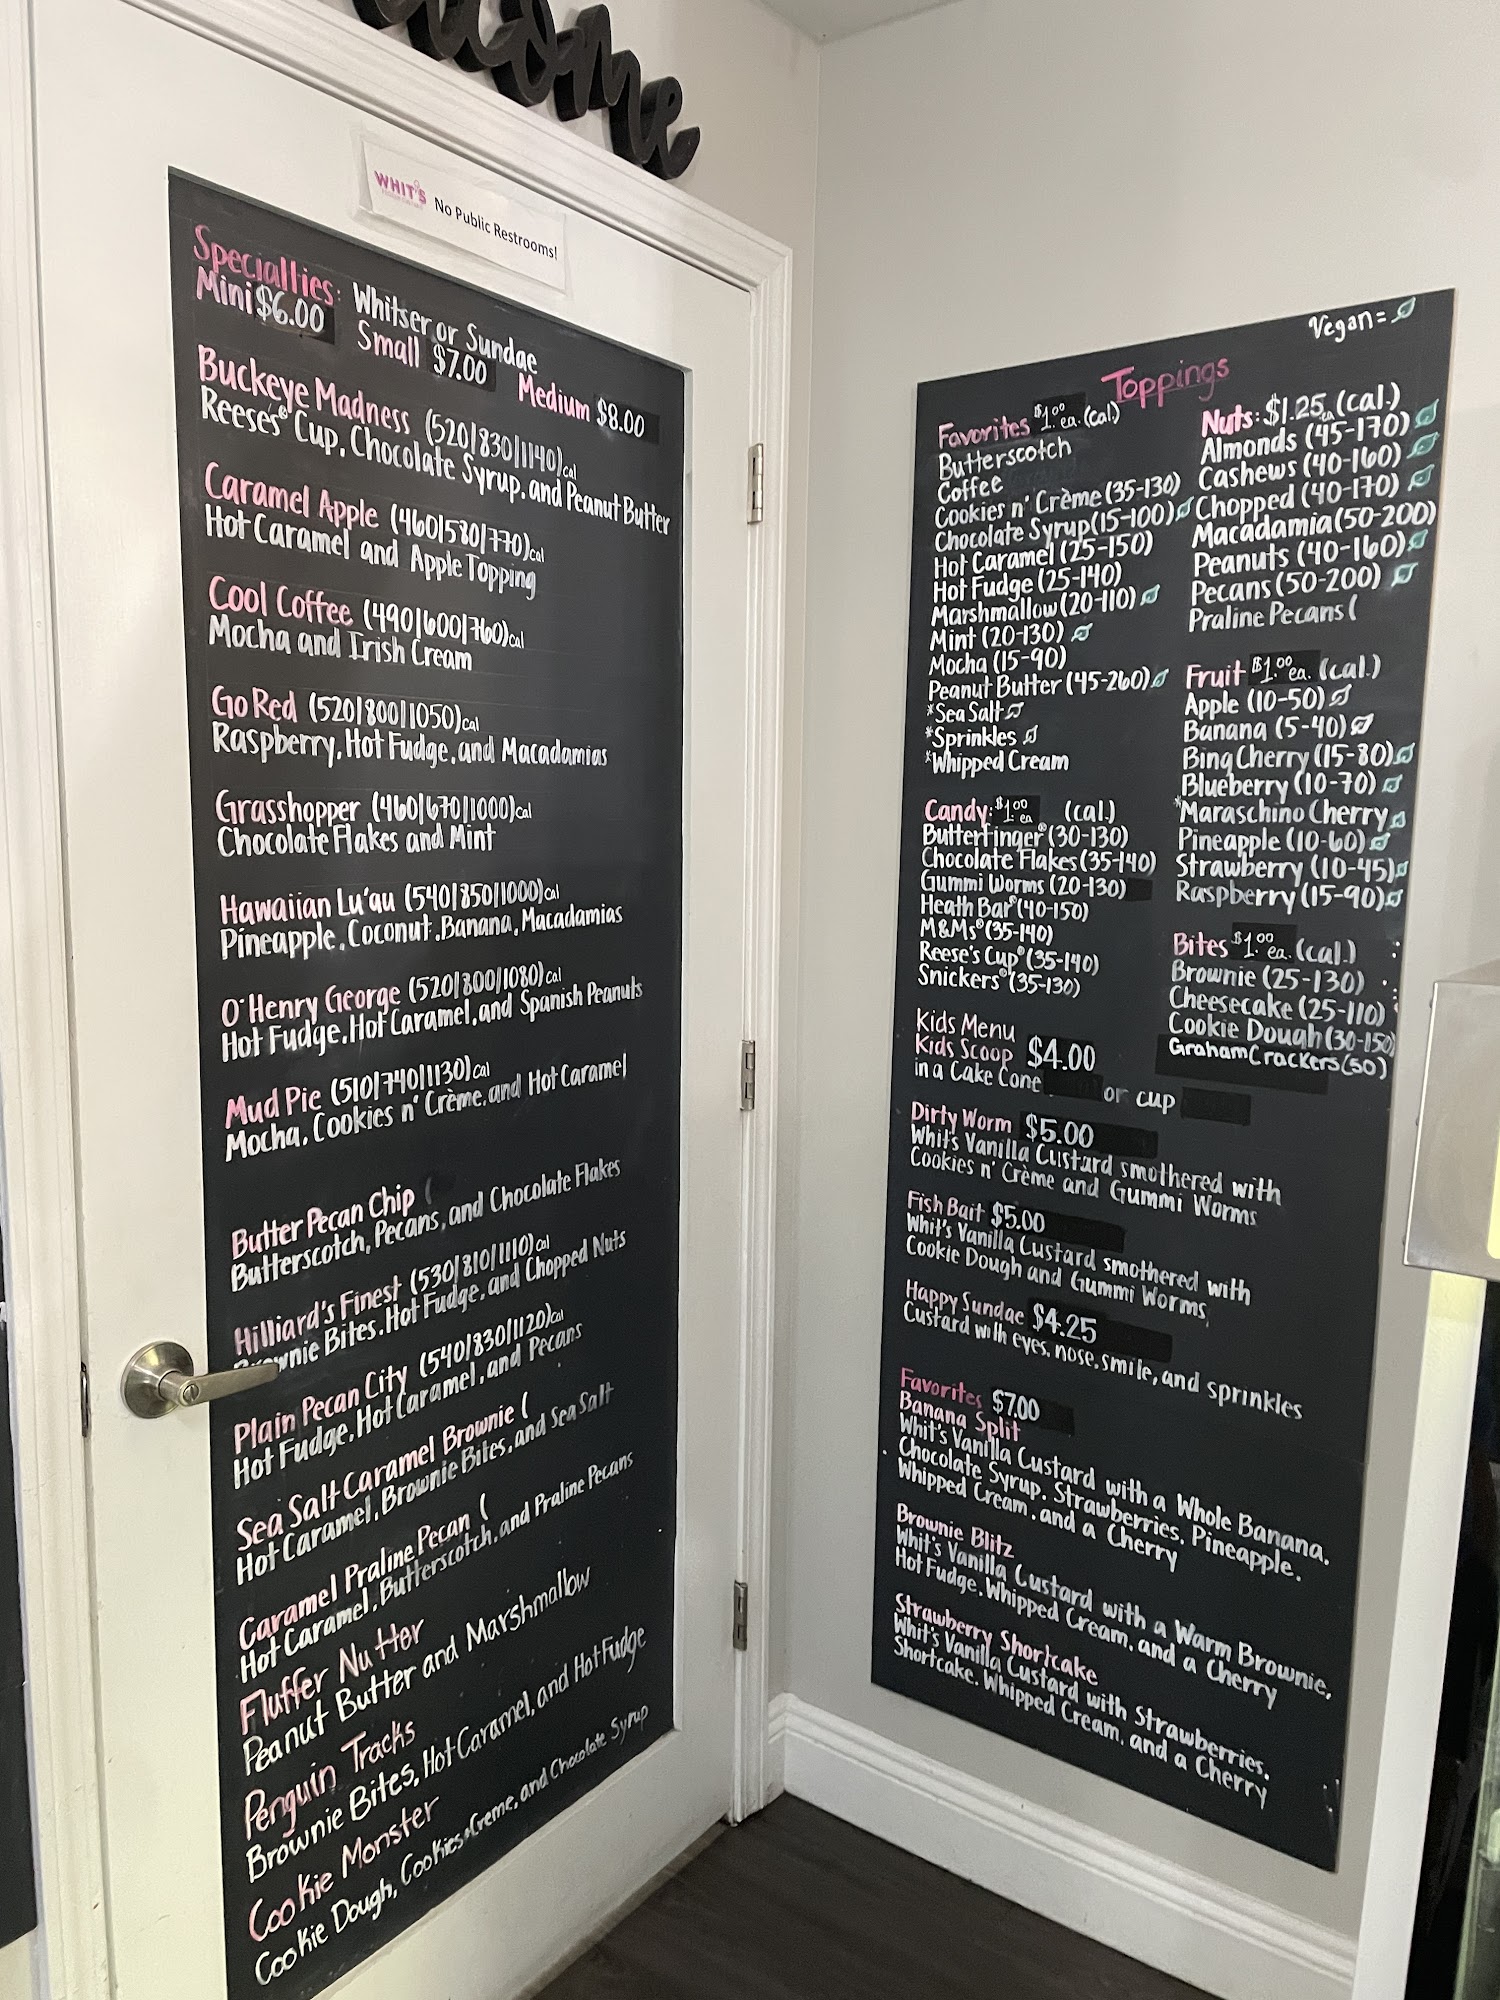 come
WHIT'S
No Public Restrooms!
Specialties: Whitser or Sundae
Mini $6.00 Small $7.00 Medium $8.00
Buckeye Madness (520|830|1140)cal
Reese's® Cup, Chocolate Syrup, and Peanut Butter
Caramel Apple (460|580|770)cal
Hot Caramel and Apple Topping
Cool Coffee (490|600|760)cal
Mocha and Irish Cream
Go Red (520|800|1050)cal
Raspberry, Hot Fudge, and Macadamias
Grasshopper (460|670|1000)cal
Chocolate Flakes and Mint
Hawaiian Lu'au (540|850|1000)cal
Pineapple, Coconut, Banana, Macadamias
O'Henry George (520|800|1080)cal
Hot Fudge, Hot Caramel, and Spanish Peanuts
Mud Pie (510|740|1130)cal
Mocha, Cookies n' Crème, and Hot Caramel
Butter Pecan Chip (
Butterscotch, Pecans, and Chocolate Flakes
Hilliard's Finest (530|810|1110)cal
Brownie Bites, Hot Fudge, and Chopped Nuts
Plain Pecan City (540|830|1120)cal
Hot Fudge, Hot Caramel, and Pecans
Sea Salt Caramel Brownie (
Hot Caramel, Brownie Bites, and Sea Salt
Caramel Praline Pecan (
Hot Caramel, Butterscotch, and Praline Pecans
Fluffer Nutter
Peanut Butter and Marshmallow
Penguin Tracks
Brownie Bites, Hot Caramel, and Hot Fudge
Cookie Monster
Cookie Dough, Cookies+Creme, and Chocolate Syrup
Vegan =
Toppings
Favorites $1.00 ea. (cal)
Butterscotch
Coffee
Cookies n' Crème (35-130)
Chocolate Syrup (15-100)
Hot Caramel (25-150)
Hot Fudge (25-140)
Marshmallow (20-110)
Mint (20-130)
Mocha (15-90)
Peanut Butter (45-260)
*Sea Salt
*Sprinkles
*Whipped Cream
Candy: $1.00 ea (cal.)
Butterfinger® (30-130)
Chocolate Flakes (35-140)
Gummi Worms (20-130)
Heath Bar® (40-150)
M&Ms® (35-140)
Reese's Cup® (35-140)
Snickers® (35-130)
Kids Menu
Kids Scoop $4.00
in a Cake Cone or cup
Dirty Worm $5.00
Whit's Vanilla Custard smothered with
Cookies n' Crème and Gummi Worms
Fish Bait $5.00
Whit's Vanilla Custard smothered with
Cookie Dough and Gummi Worms
Happy Sundae $4.25
Custard with eyes, nose, smile, and sprinkles
Favorites $7.00
Banana Split
Whit's Vanilla Custard with a Whole Banana,
Chocolate Syrup, Strawberries, Pineapple,
Whipped Cream, and a Cherry
Brownie Blitz
Whit's Vanilla Custard with a Warm Brownie,
Hot Fudge, Whipped Cream, and a Cherry
Strawberry Shortcake
Whit's Vanilla Custard with Strawberries,
Shortcake, Whipped Cream, and a Cherry
Nuts: $1.25 ea (cal.)
Almonds (45-170)
Cashews (40-160)
Chopped (40-170)
Macadamia (50-200)
Peanuts (40-160)
Pecans (50-200)
Praline Pecans (
Fruit $1.00 ea. (cal.)
Apple (10-50)
Banana (5-40)
Bing Cherry (15-80)
Blueberry (10-70)
*Maraschino Cherry
Pineapple (10-60)
Strawberry (10-45)
Raspberry (15-90)
Bites $1.00 ea. (cal.)
Brownie (25-130)
Cheesecake (25-110)
Cookie Dough (30-150)
Graham Crackers (50)